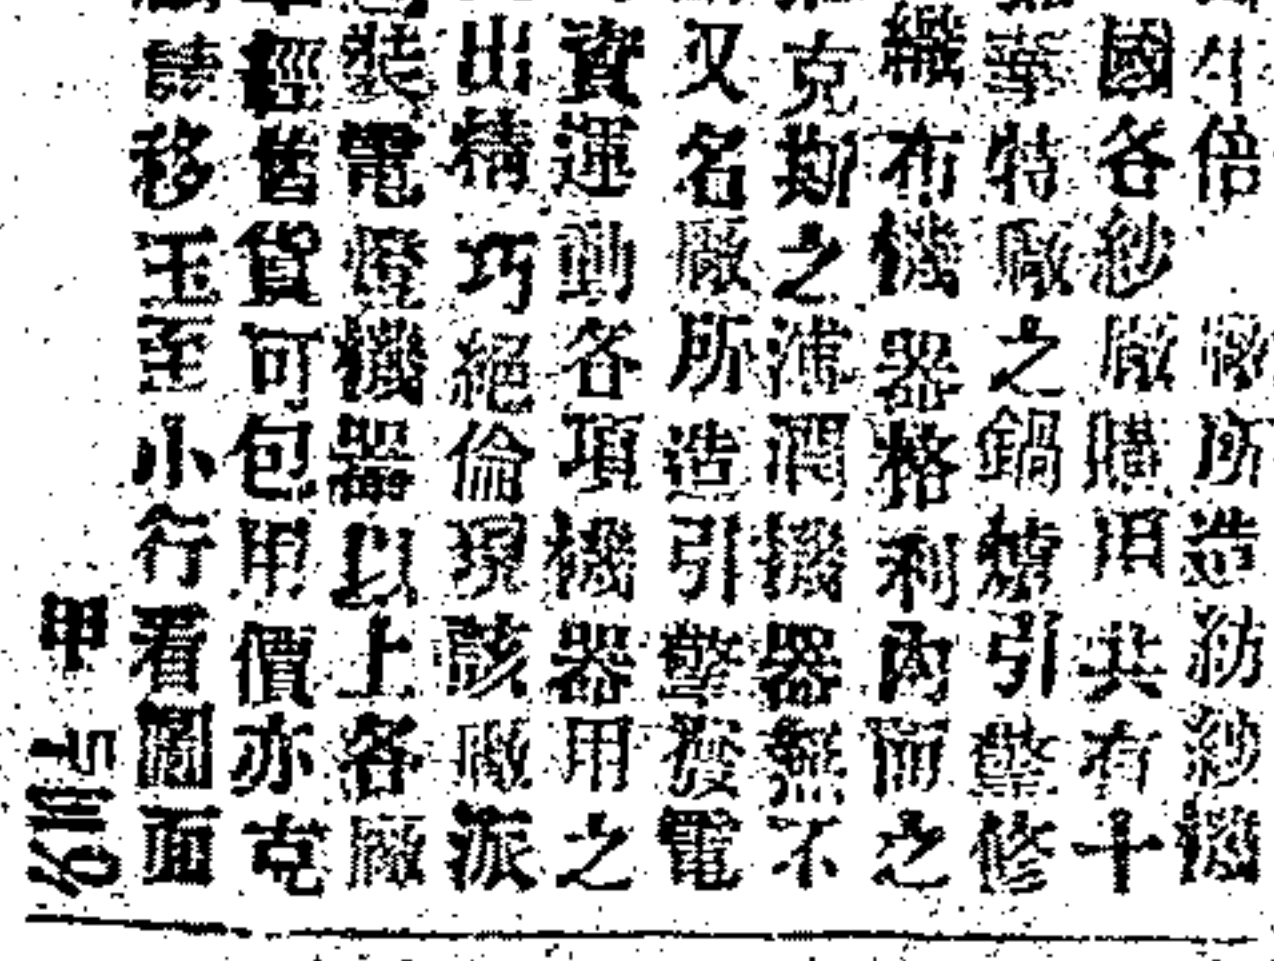 倍　廠所造紡紗機
國各紗廠購用共有十
華特廠之鍋爐引擎修
織布機器格利內而之
克斯之沛潤機器無不
又名廠所造引擎發電
資運動各項機器用之
出精巧絕倫現該廠派
裝電燈機器以上各廠
輕舊貨可包用價亦克
請移玉至小行看圖面
甲